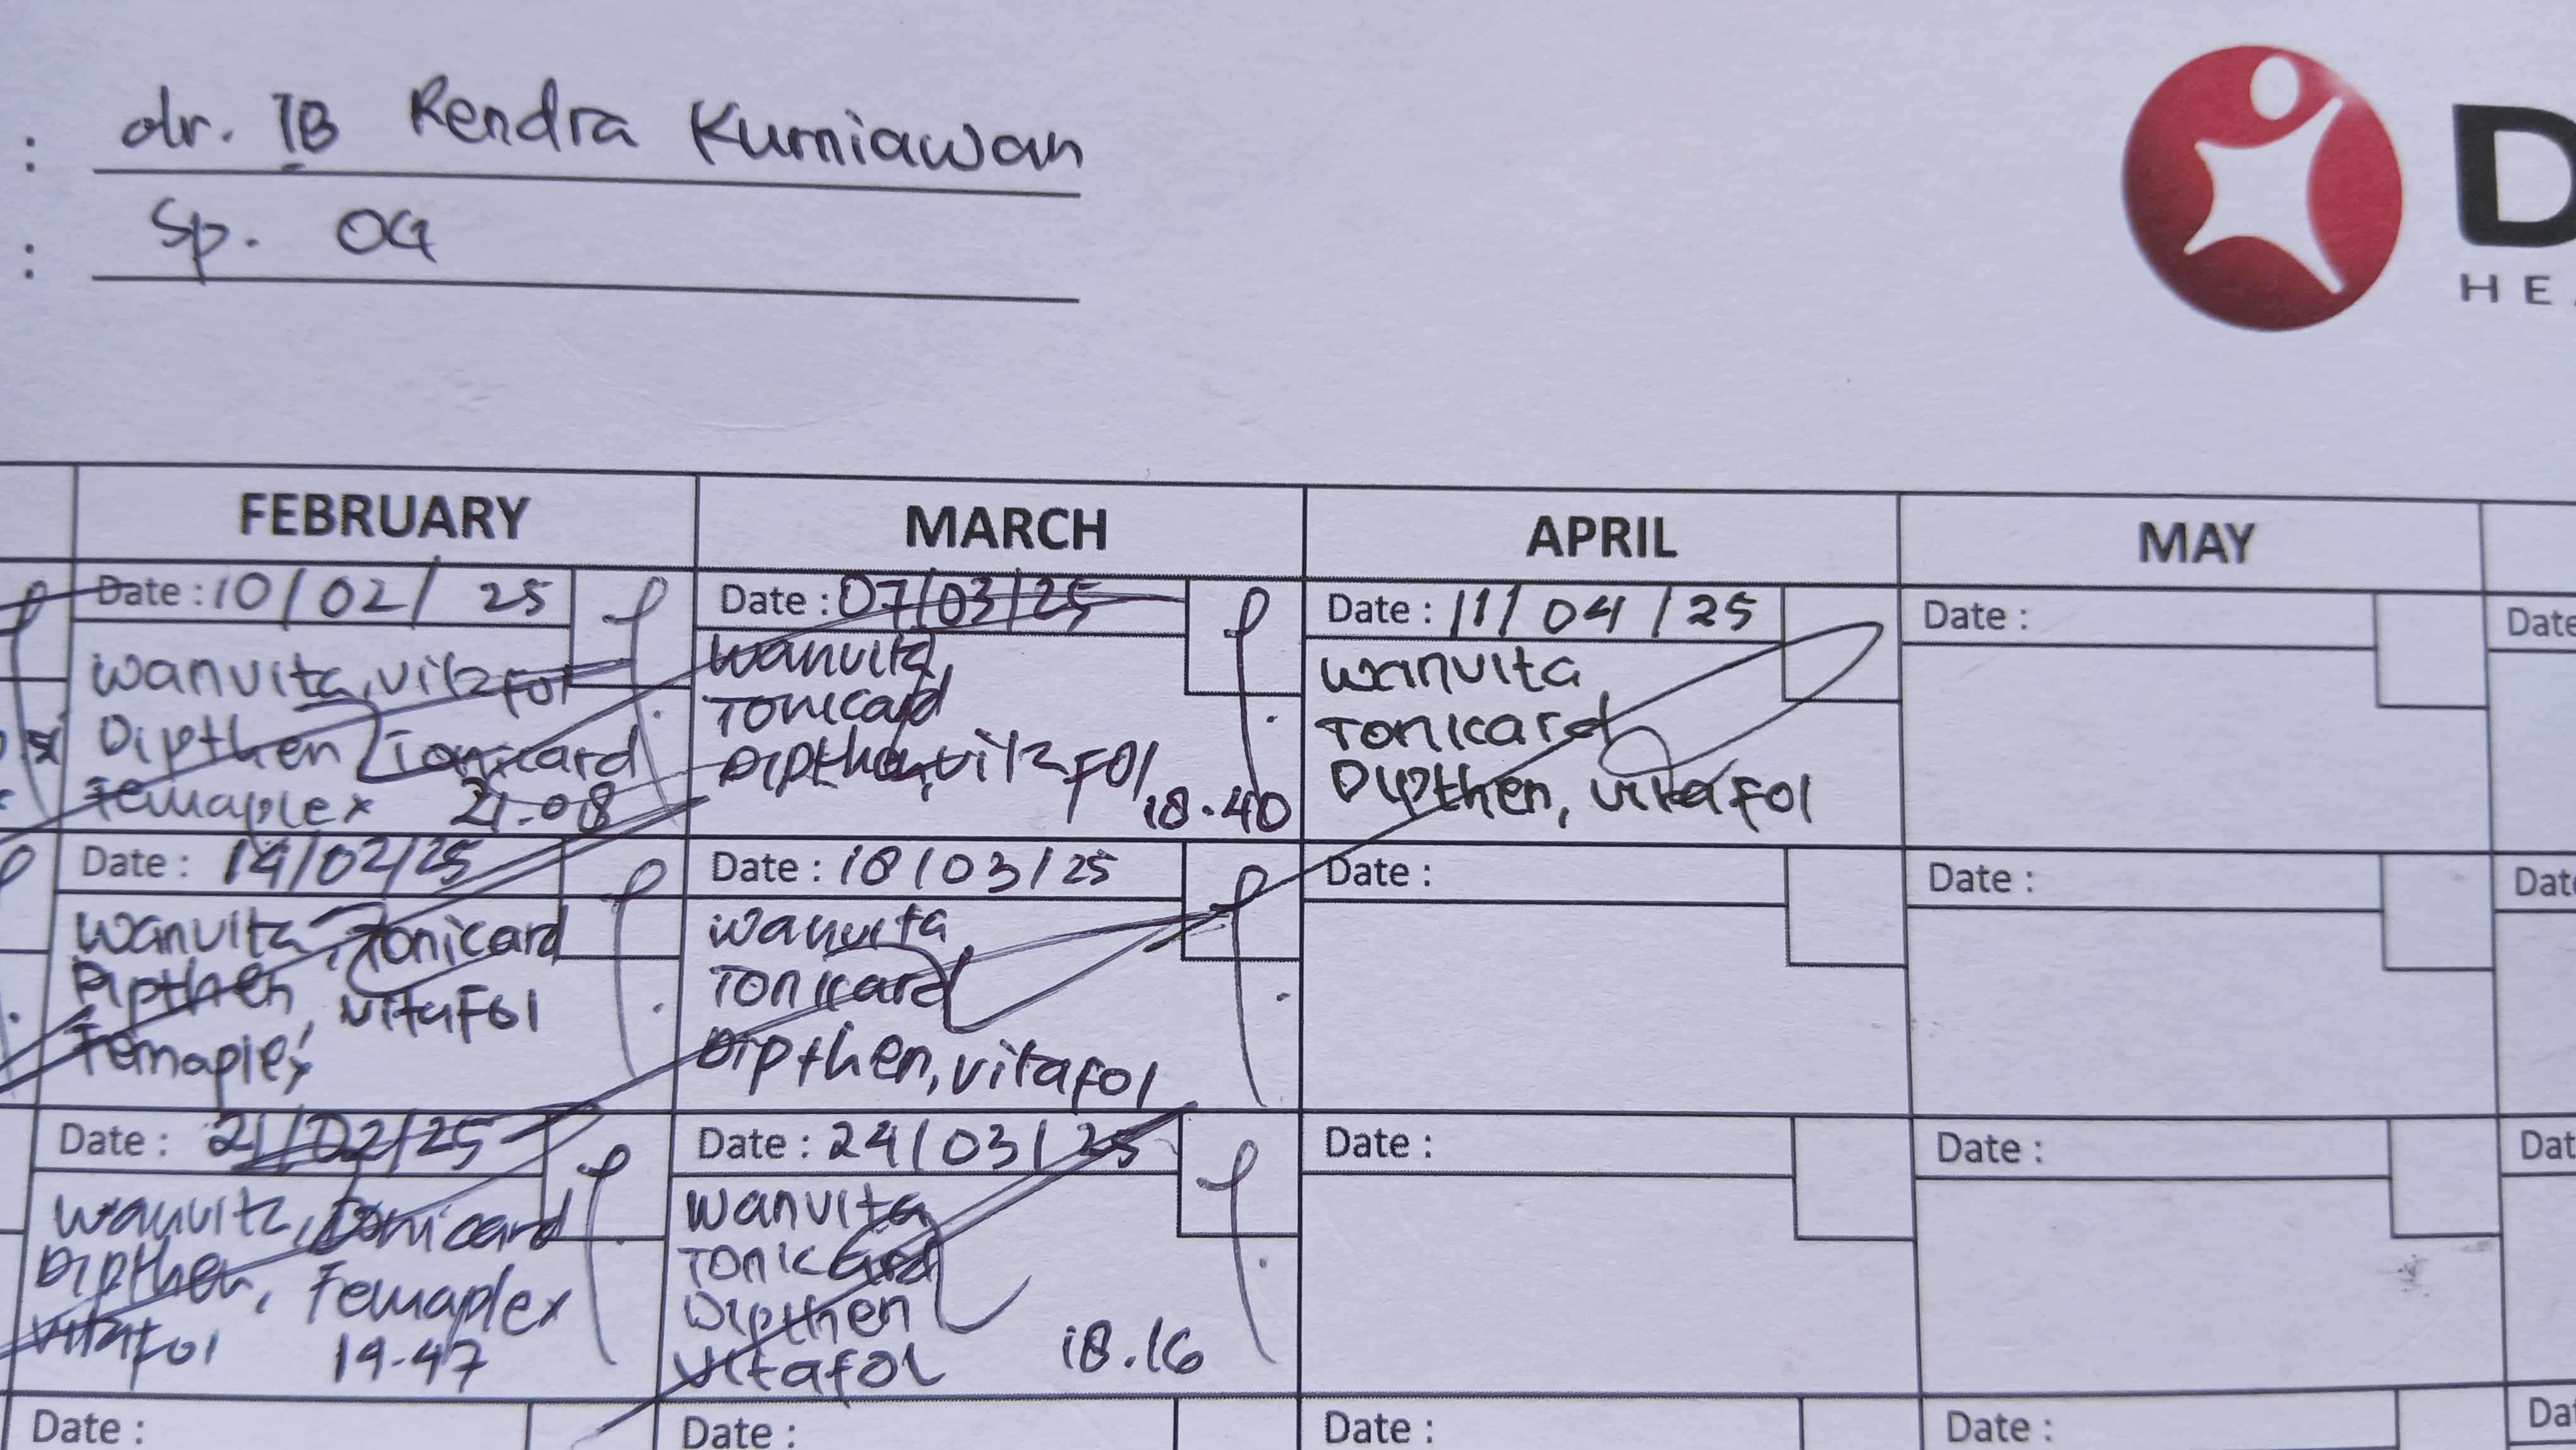 : dr. IB Rendra Kurniawan
: Sp. OG
D
HE
FEBRUARY MARCH APRIL MAY
Date : 10/02/25
Wanvita, vitafol
Dipthen, Tonicard
Femaplex 21.08
Date : 07/03/25
Wanvita,
Tonicard
Dipthen, vitafol
18.40
Date : 11/04/25
Wanvita
Tonicard
Dipthen, vitafol
Date :
Date
Date : 14/02/25
Wanvita, Tonicard
Dipthen, vitafol
Femaplex
Date : 18/03/25
Wanvita,
Tonicard
Dipthen, vitafol
Date :
Date :
Dat
Date : 21/02/25
Wanvita, Tonicard
Dipthen, Femaplex
vitafol 19.47
Date : 24/03/25
Wanvita
Tonicard
Dipthen
vitafol 18.16
Date :
Date :
Dat
Date :
Date :
Date :
Date :
Da